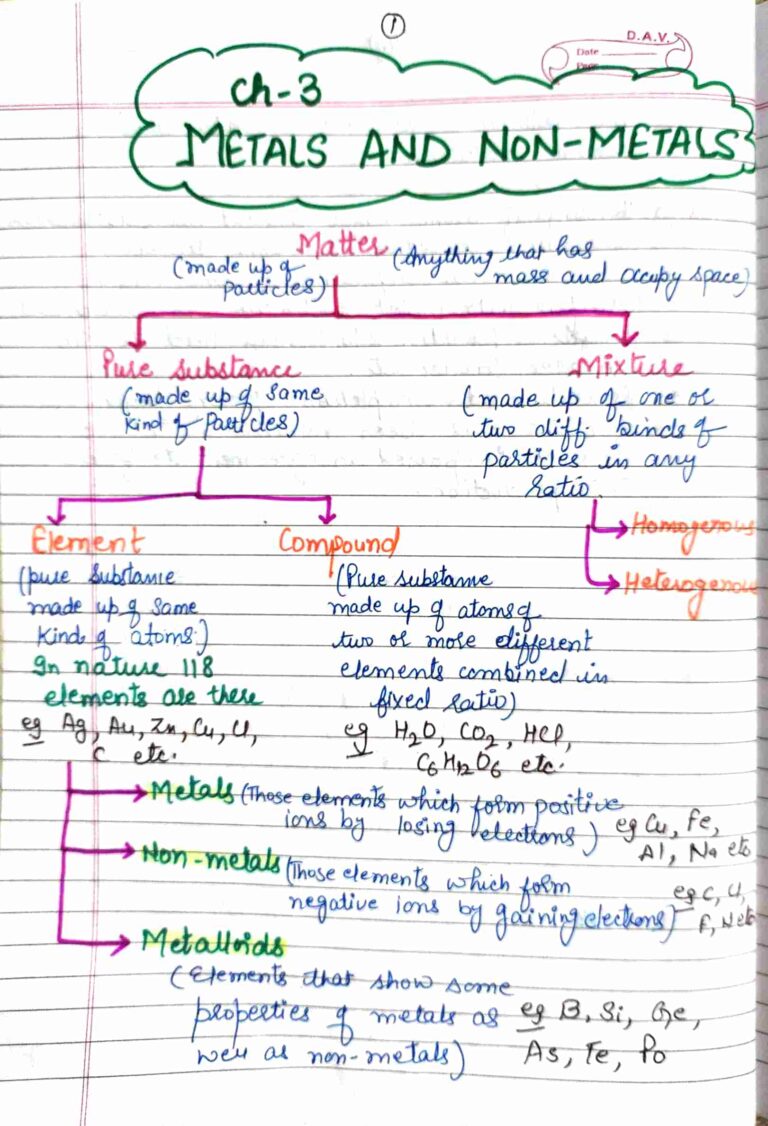 1
D.A.V.
Date
Page
Ch-3
METALS AND NON-METALS
Matter (Anything that has
mass and occupy space)
(made up of
particles)
Pure substance
(made up of same
kind of particles)
Mixture
(made up of one or
two diff kinds of
particles in any
ratio
Homogenous
Heterogenous
Element
(pure substance
made up of same
kind of atoms.)
In nature 118
elements are there
eg Ag, Au, Zn, Cu, Cl,
C etc.
Compound
(Pure substance
made up of atoms of
two or more different
elements combined in
fixed ratio)
eg H2O, CO2, HCl,
C6H12O6 etc.
Metals (Those elements which form positive
ions by losing electrons)
eg Cu, Fe,
Al, Na etc
Non-metals (Those elements which form
negative ions by gaining electrons)
eg C, Cl,
F, N etc
Metalloids
(Elements that show some
properties of metals as
well as non-metals)
eg B, Si, Ge,
As, Te, Po